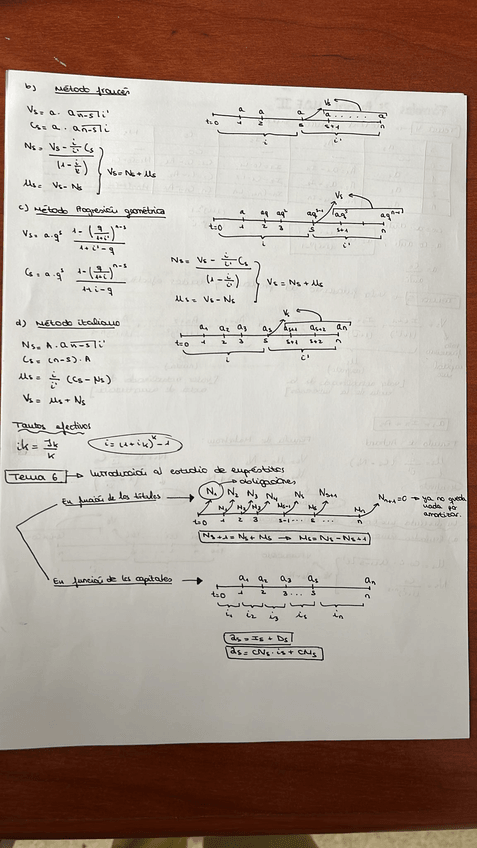 b) Método francés
Vs = a · a n-s| i'
Cs = a · a n-s| i
Ns = Vs - i/i' Cs / (1 - i/i')
Us = Vs - Ns
Vs = Ns + Us
Vs
a a a a ..... a
t=0 1 2 s s+1 n
i i'
c) Método Progresión geométrica
Vs = a·q^s 1-(q/1+i')^n-s / 1+i'-q
Cs = a·q^s 1-(q/1+i)^n-s / 1+i-q
Ns = Vs - i/i' Cs / (1 - i/i')
Us = Vs - Ns
Vs = Ns + Us
Vs
a aq aq² aq^s-1 aq^s aq^n-1
t=0 1 2 3 s s+1 n
i i'
d) Método italiano
Ns = A · a n-s| i'
Cs = (n-s) · A
Us = i/i' (Cs - Ns)
Vs = Us + Ns
Vs
a1 a2 a3 as as+1 as+2 an
t=0 1 2 3 s s+1 s+2 n
i i'
Tantos efectivos
ik = Jk/k i = (1+ik)^k - 1
Tema 6 → Introducción al estudio de empréstitos
→ obligaciones
En función de los títulos →
N1 N2 N3 N4 Ns Ns+1 Nn+1=0 → ya no queda
nada por
amortizar.
M1 M2 M3 Ms-1 Ms Mn
t=0 1 2 3 s-1 ... s ... n
Ns+1 = Ns + Ms → Ms = Ns - Ns+1
En función de los capitales →
a1 a2 a3 as an
t=0 1 2 3 ... s n
i1 i2 i3 is in
as = Is + Ds
as = CNs · is + CMs